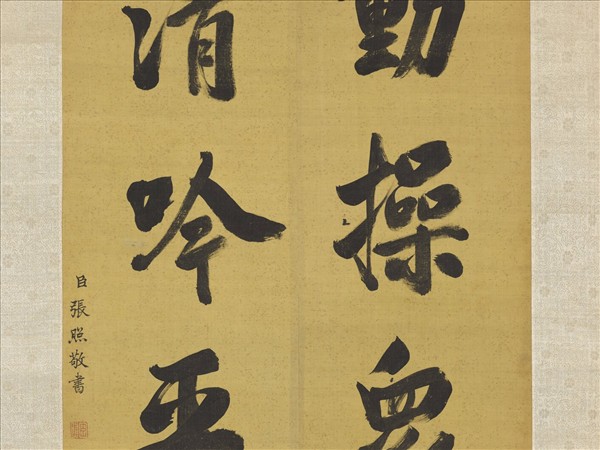 動操眾
清吟
臣張照敬書